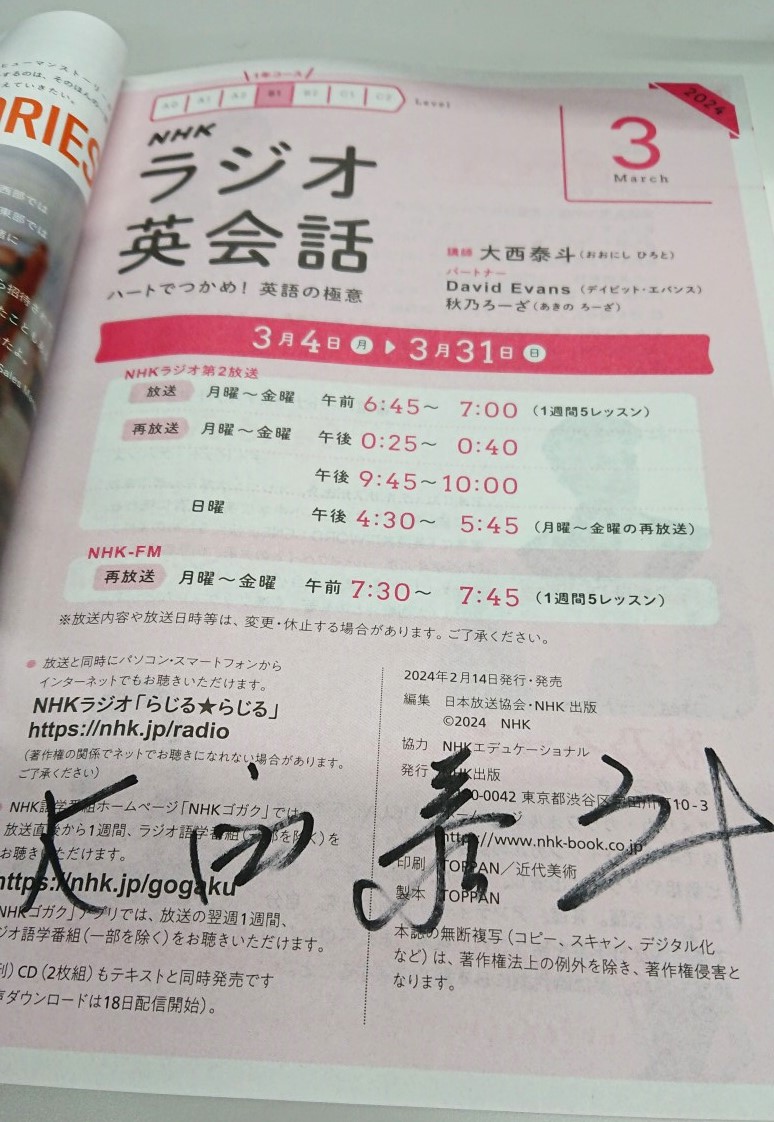 ヒューマンストーリー
するのは、そのほんの
えていきたい。
ORIES
西部では
東部では
1年コース
A0 A1 A2 B1 B2 C1 C2 Level
2024
3
March
NHK
ラジオ
英会話
ハートでつかめ！英語の極意
講師 大西泰斗（おおにし ひろと）
パートナー
David Evans（デイビット・エバンス）
秋乃ろーざ（あきの ろーざ）
3月4日月▶3月31日日
NHKラジオ第2放送
放送 月曜〜金曜 午前 6:45〜 7:00（1週間5レッスン）
再放送 月曜〜金曜 午後 0:25〜 0:40
午後 9:45〜10:00
日曜 午後 4:30〜 5:45（月曜〜金曜の再放送）
NHK-FM
再放送 月曜〜金曜 午前 7:30〜 7:45（1週間5レッスン）
※放送内容や放送日時等は、変更・休止する場合があります。ご了承ください。
● 放送と同時にパソコン・スマートフォンから
インターネットでもお聴きいただけます。
NHKラジオ「らじる★らじる」
https://nhk.jp/radio
（著作権の関係でネットでお聴きになれない場合があります。
ご了承ください）
● NHK語学番組ホームページ「NHKゴガク」では、
放送直後から1週間、ラジオ語学番組（一部を除く）を
お聴きいただけます。
https://nhk.jp/gogaku
NHKゴガク」アプリでは、放送の翌週1週間、
ジオ語学番組（一部を除く）をお聴きいただけます。
刊）CD（2枚組）もテキストと同時発売です
声ダウンロードは18日配信開始）。
2024年2月14日発行・発売
編集 日本放送協会・NHK出版
©2024 NHK
協力 NHKエデュケーショナル
発行 NHK出版
0-0042 東京都渋谷区宇田川町10-3
ホームページ
https://www.nhk-book.co.jp
印刷 TOPPAN／近代美術
製本 TOPPAN
本誌の無断複写（コピー、スキャン、デジタル化
など）は、著作権法上の例外を除き、著作権侵害と
なります。
大西泰斗